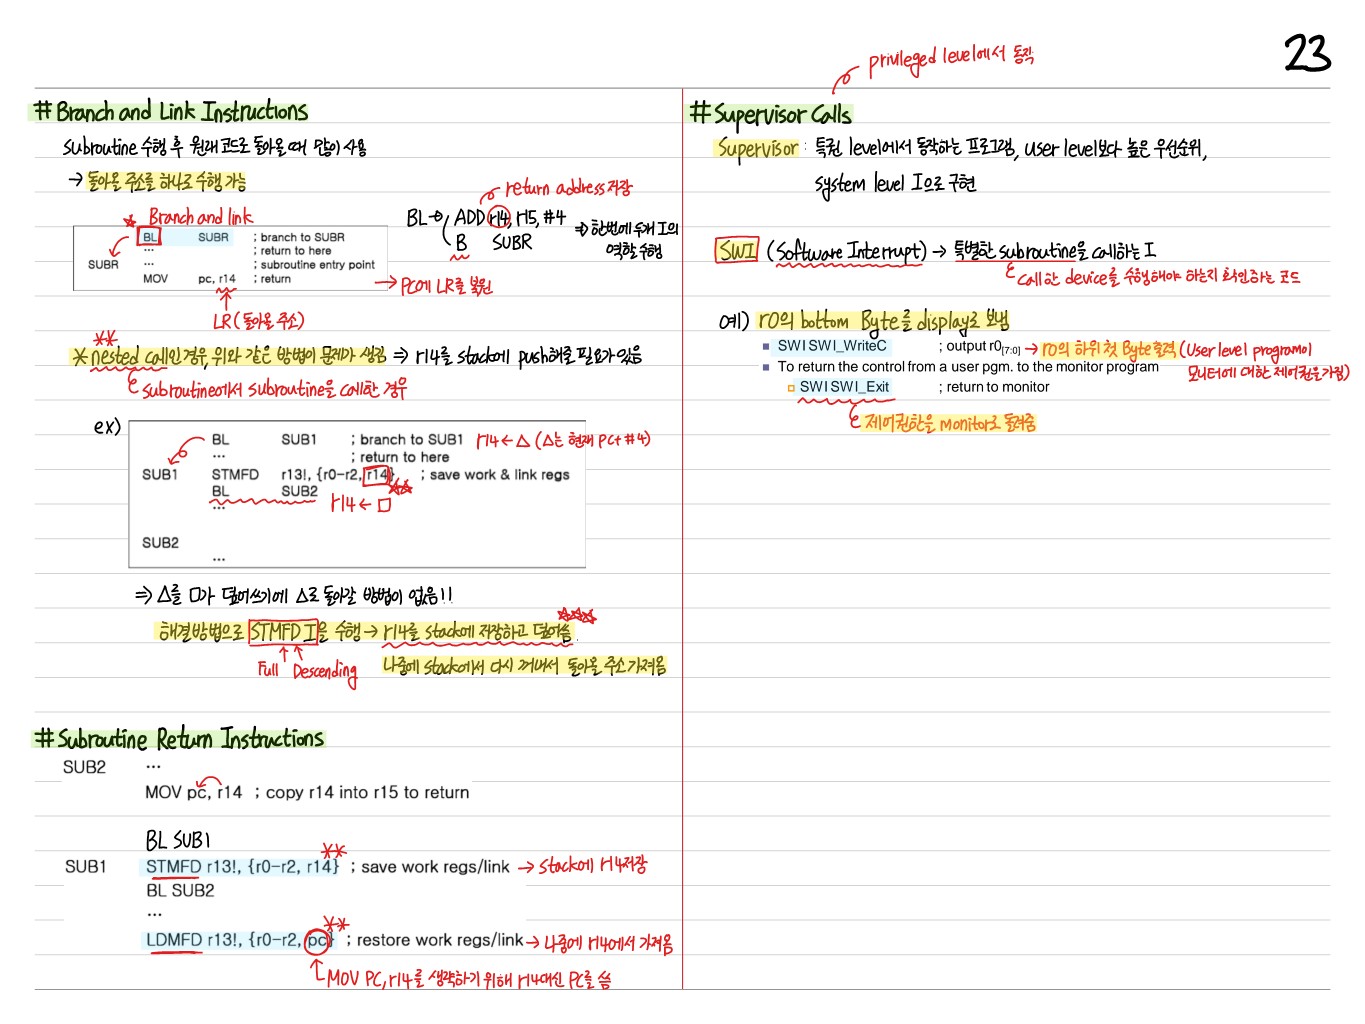 23
# Branch and Link Instructions
subroutine 수행 후 원래 코드로 돌아올 때 많이 사용
→ 돌아올 주소를 하나로 수행 가능
Branch and link
BL SUBR ; branch to SUBR
... ; return to here
SUBR ... ; subroutine entry point
MOV pc, r14 ; return
→ PC에 LR를 복원
LR (돌아올 주소)
return address 저장
BL → ADD r14, r15, #4
B SUBR
⇒ 한번에 두개 I의
역할 수행
* nested call인 경우, 위와 같은 방법이 문제가 생김 ⇒ r14를 stack에 push해줄 필요가 있음
subroutine에서 subroutine을 call한 경우
ex)
BL SUB1 ; branch to SUB1 r14 ← △ (△는 현재 PC+ #4)
... ; return to here
SUB1 STMFD r13!, {r0-r2, r14} ; save work & link regs
BL SUB2
... r14 ← □
SUB2
...
⇒ △를 □가 덮어쓰기에 △로 돌아갈 방법이 없음!!
해결방법으로 STMFD I을 수행 → r14를 stack에 저장하고 덮어씀.
Full Descending
나중에 stack에서 다시 꺼내서 돌아올 주소 가져옴
# Subroutine Return Instructions
SUB2 ...
MOV pc, r14 ; copy r14 into r15 to return
BL SUB1
SUB1 STMFD r13!, {r0-r2, r14} ; save work regs/link → stack에 r14저장
BL SUB2
...
LDMFD r13!, {r0-r2, pc} ; restore work regs/link → 나중에 r14에서 가져옴
MOV PC, r14를 생략하기 위해 r14대신 PC를 씀
privileged level에서 동작
# Supervisor Calls
Supervisor : 특권 level에서 동작하는 프로그램, user level보다 높은 우선순위,
system level I으로 구현
SWI (Software Interrupt) → 특별한 subroutine을 call하는 I
call한 device를 수행해야 하는지 확인하는 코드
예) r0의 bottom Byte를 display로 보냄
■ SWI SWI_WriteC ; output r0[7:0] → r0의 하위 첫 Byte출력 (User level program이
■ To return the control from a user pgm. to the monitor program
모니터에 대한 제어권을가짐)
□ SWI SWI_Exit ; return to monitor
제어권한을 monitor로 돌려줌